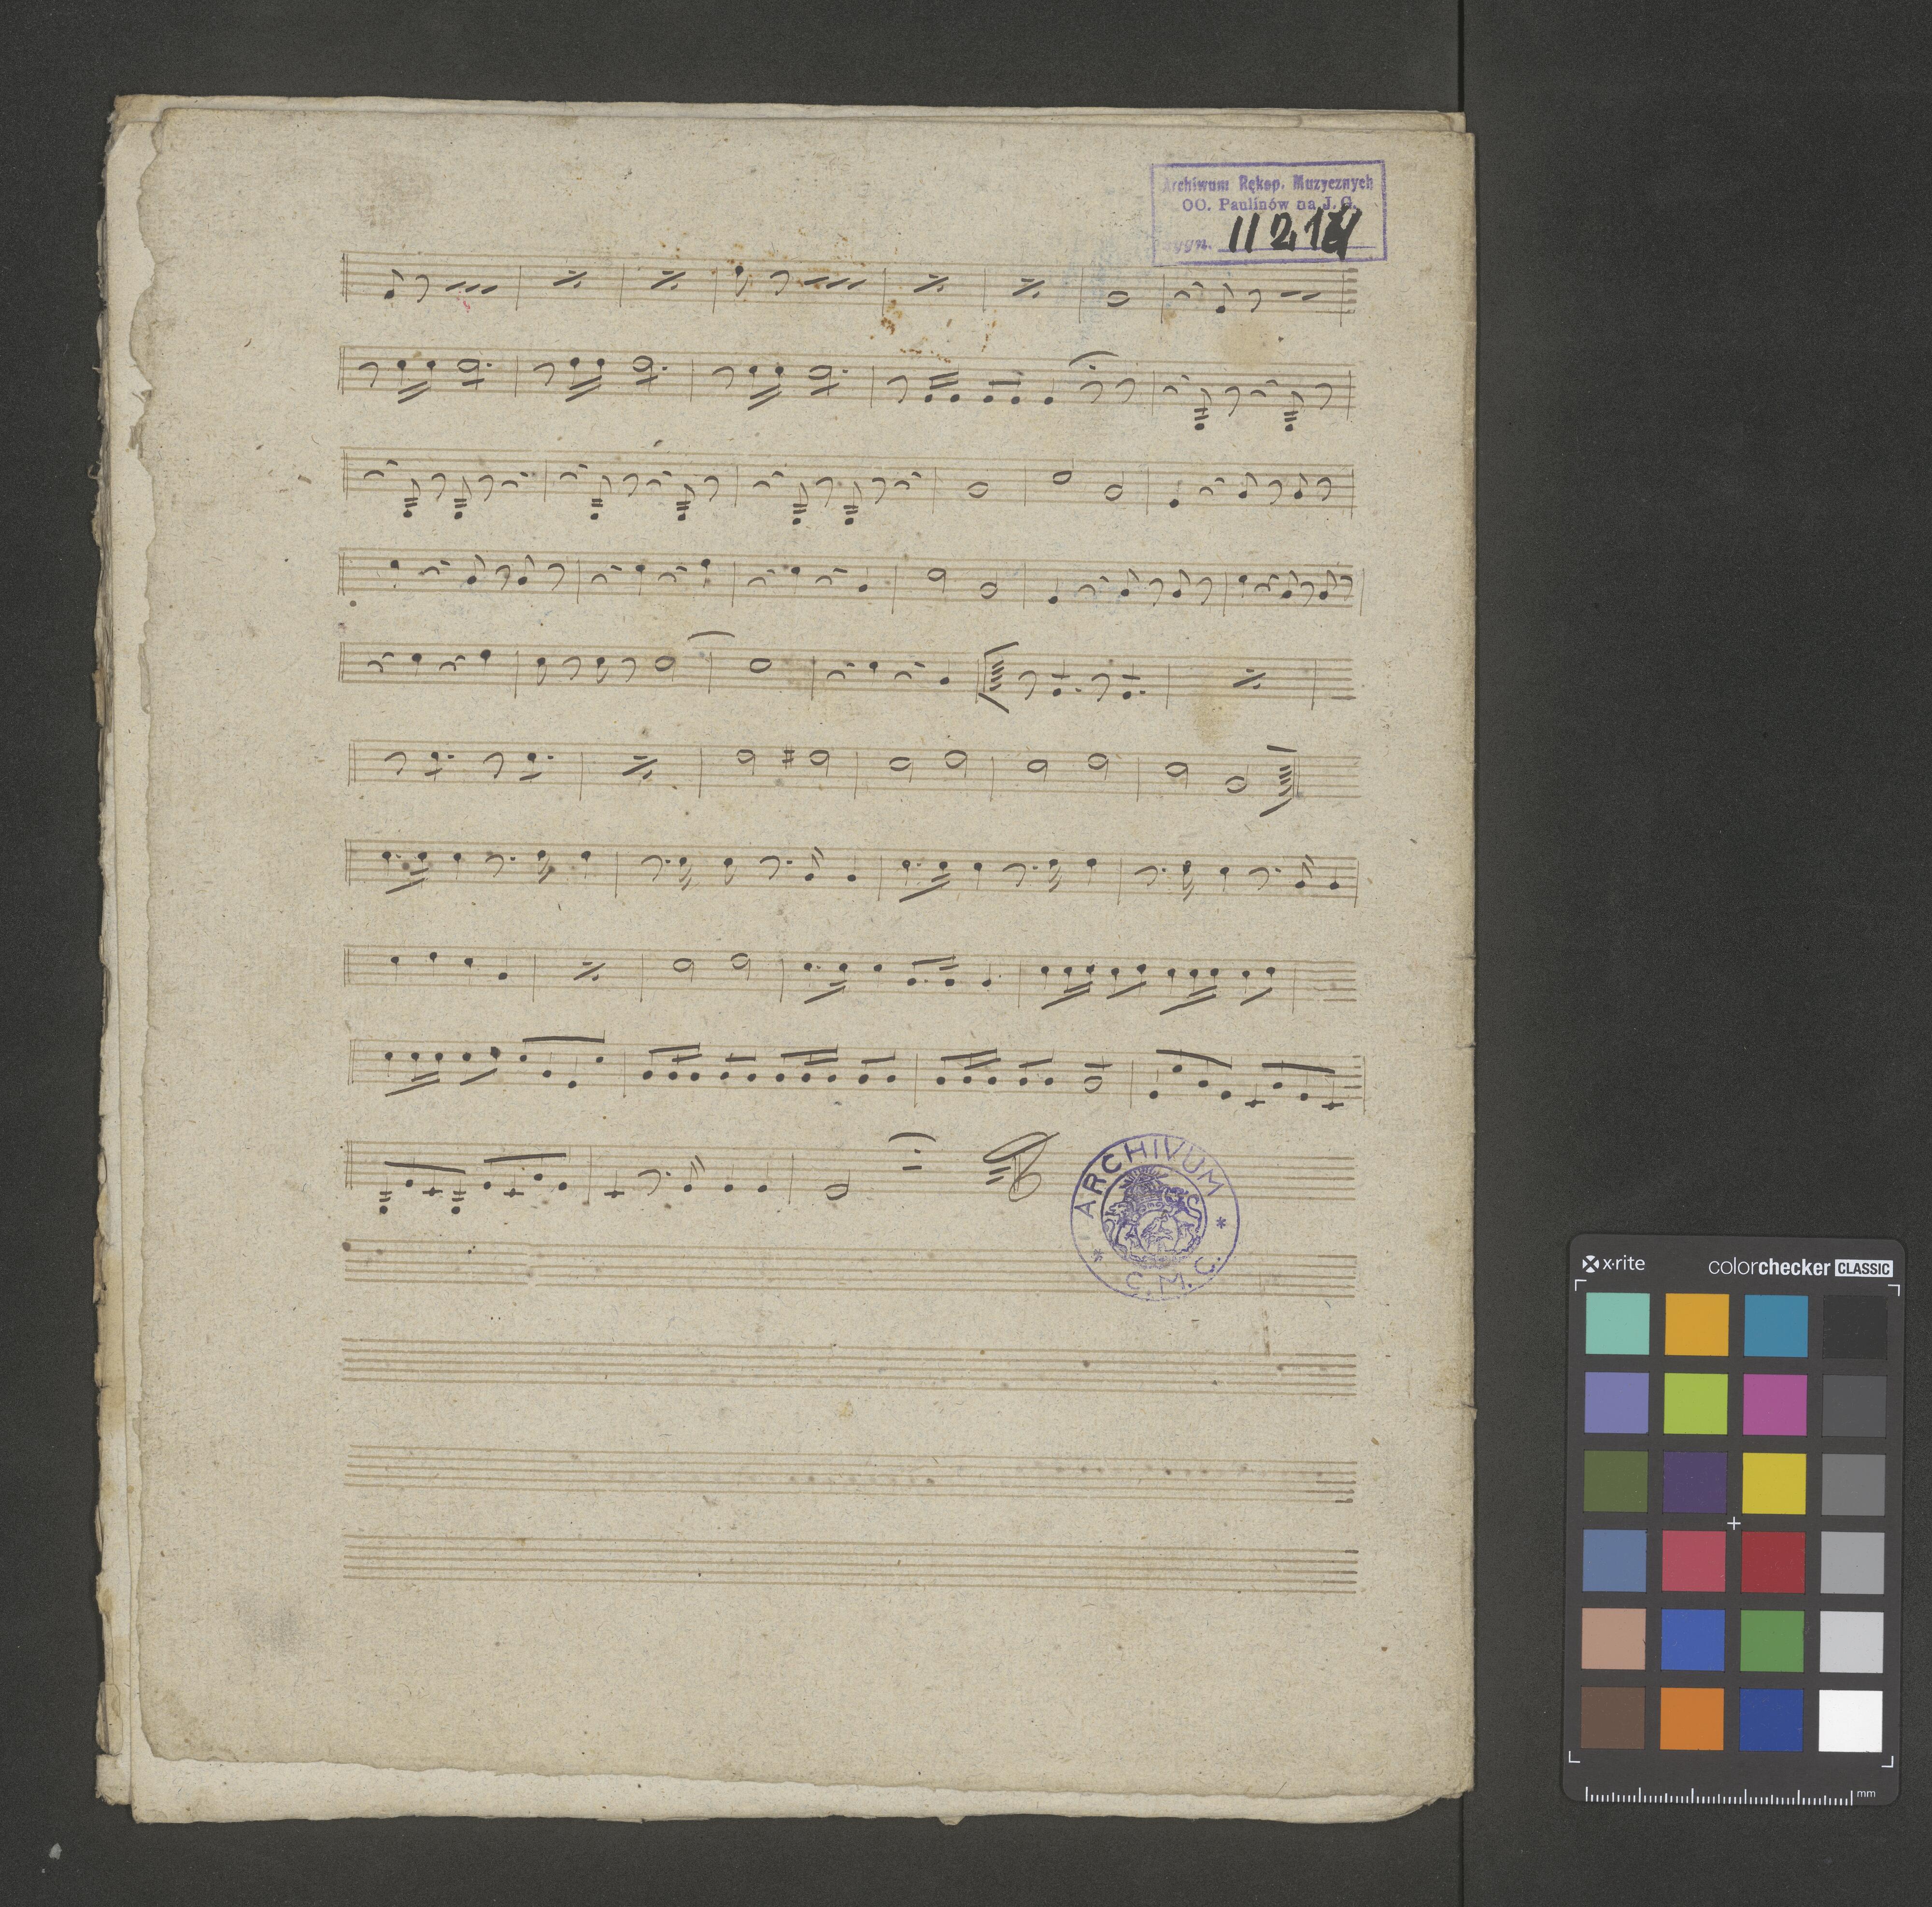 Archiwum Rękop. Muzycznych
OO. Paulinów na J. G.
sygn.
ARCHIVUM
* C. M. C. *
x·rite
colorchecker CLASSIC
mm